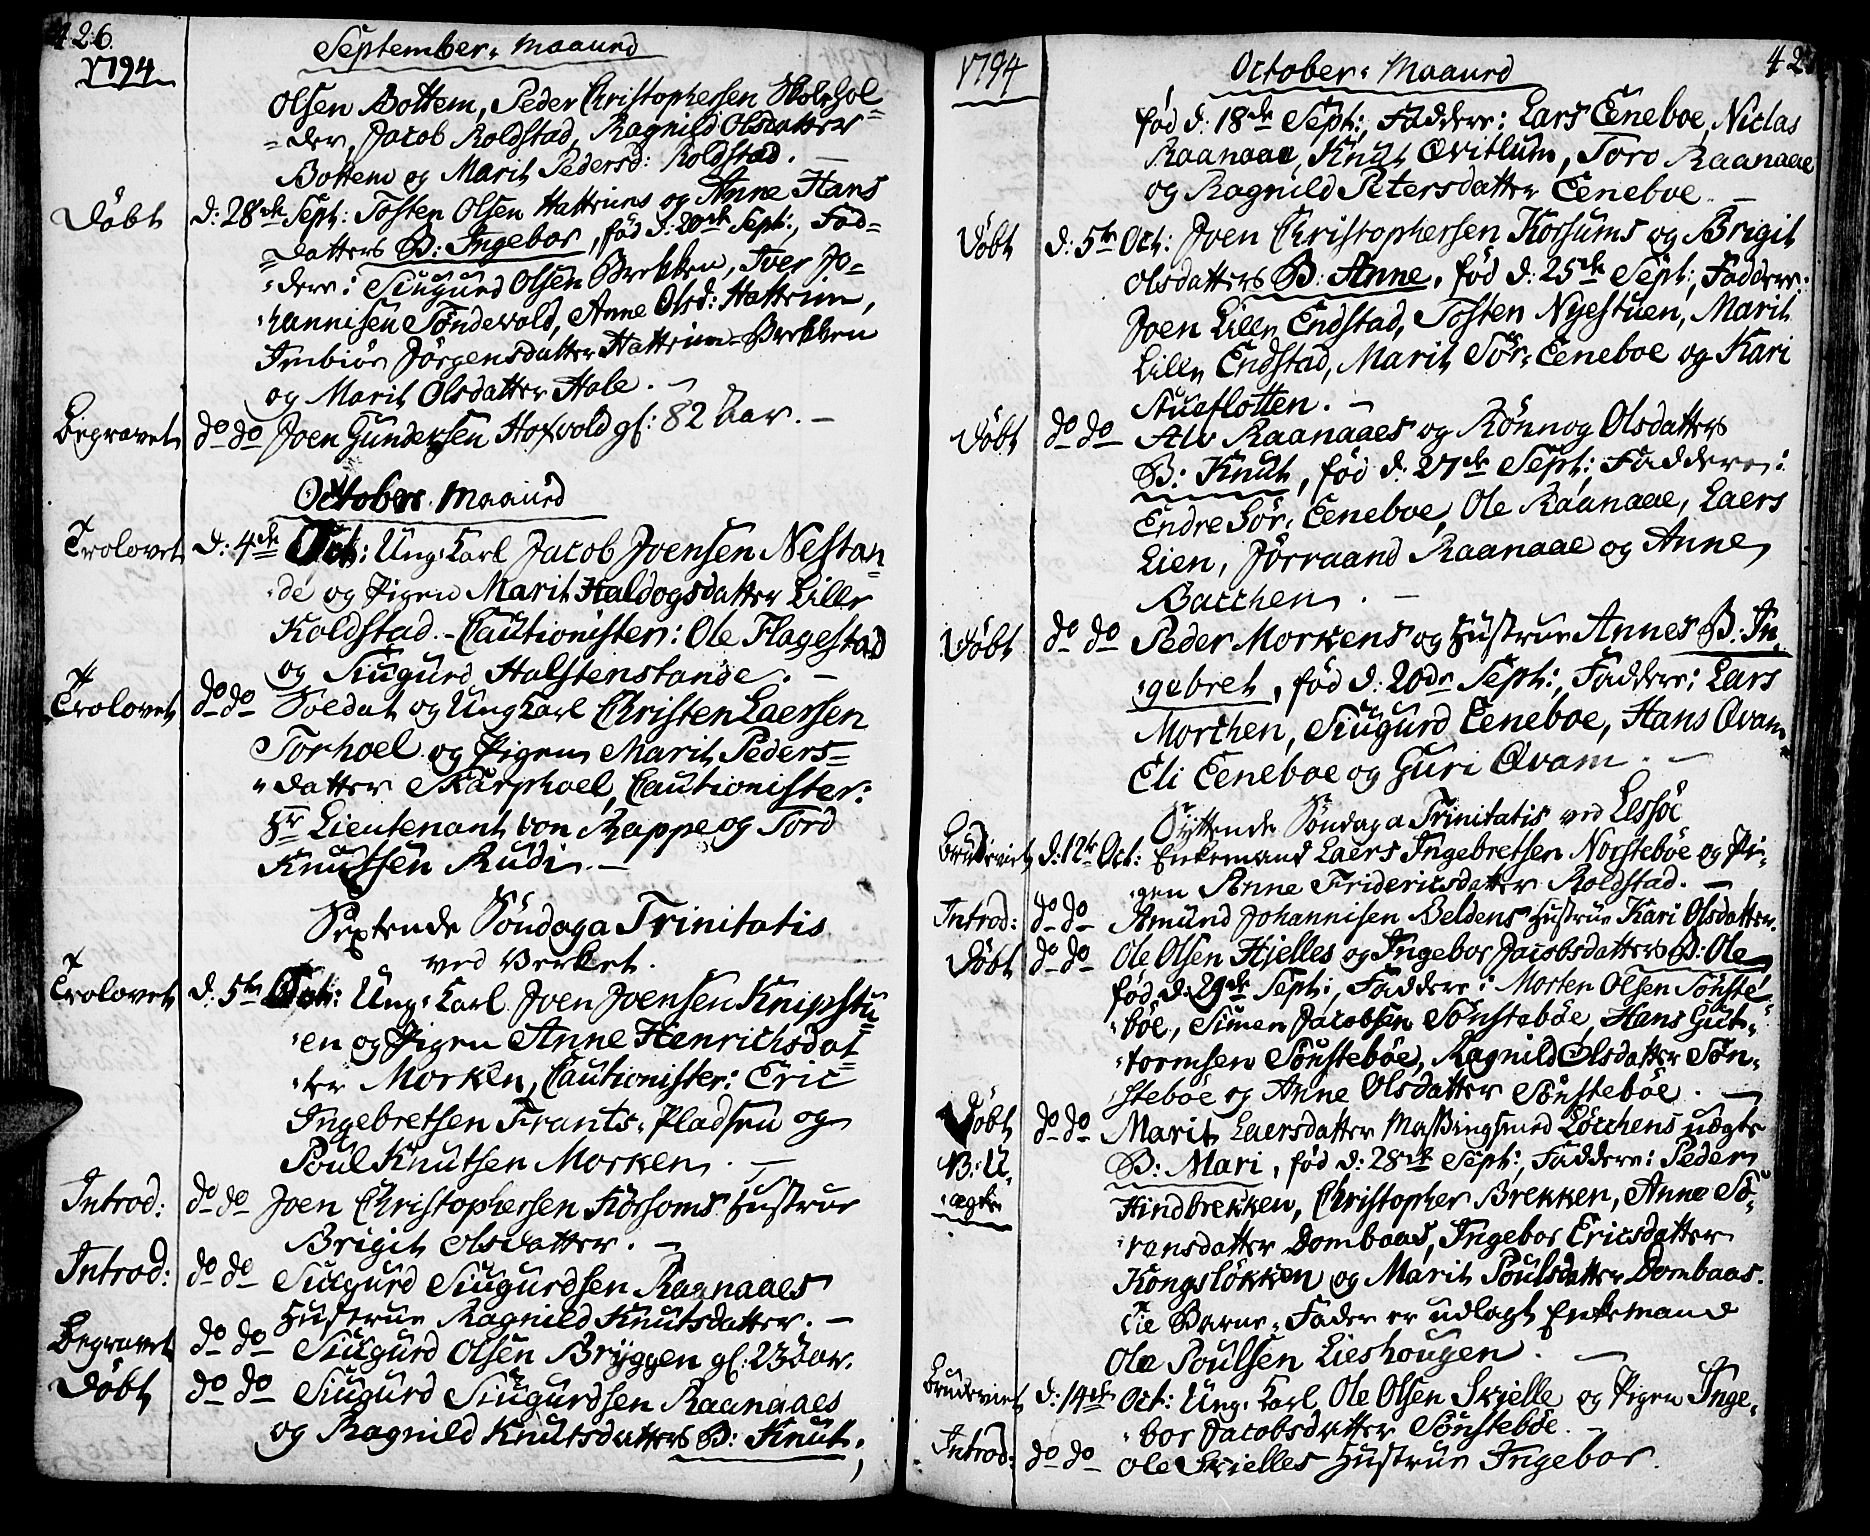 426.
1794
September: Maaned
Olsen Bottem, Peder Christophersen Skolehol=
=der, Jacob Koldstad, Ragnild Olsdatter
Bottem og Marit Pedersd: Koldstad. —
Døbt d: 28de Sept: Tosten Olsen Hattrems og Anne Hans
=datters B: Ingebor, fød d: 20de Sept:, Fad=
=dere: Siugurd Olsen Brekken, Iver Jo=
=hannisen Tøndevold, Anne Olsd: Hattrem,
Imbiør Jørgensdatter Hattrem-Brekken
og Marit Olsdatter Hole. —
Begravet do do Joen Gundersen Hofvold gl: 82 Aar. —
October. Maaned
Trolovet d: 4de Oct: Ung-Karl Jacob Joensen Nestan=
=de og Pigen Marit Haldogsdatter Lille
Koldstad. - Cautionister: Ole Flagestad
og Siugurd Halstenstande. —
Trolovet do do Soldat og Ung Karl Christen Laersen
Torhoel og Pigen Marit Peders=
=datter Skarphoel, Cautionister:
Hr Lieutenant von Kappe og Tord
Knutsen Rudi. —
Sextende Søndag a Trinitatis
ved Verket.
Trolovet d: 5te Oct: Ung-Karl Joen Joensen Knipstu=
=en og Pigen Anne Henrichsdat=
=ter Morken, Cautionister: Eric
Ingebretsen Frants-Pladsen og
Poul Knutsen Morken. —
Introd: do do Joen Christophersen Korsoms Hustrue
Brigit Olsdatter. —
Introd: do do Siugurd Siugurdsen Raanaaes
Hustrue Ragnild Knutsdatter. —
Begravet do do Siugurd Olsen Bryggen gl: 23 Aar.
Døbt do do Siugurd Siugurdsen Raanaaes
og Ragnild Knutsdatters B: Knut,
1794
October: Maaned
fød d: 18de Sept:, Faddere: Lars Eeneboe, Niclas
Raanaae, Knut Qvitlum, Toro Raanaae
og Ragnild Petersdatter Eeneboe. —
Døbt d: 5te Oct: Joen Christophersen Korsums og Brigit
Olsdatters B: Anne, fød d: 25de Sept:, Faddere:
Joen Lille Endstad, Tosten Nyestuen, Marit
Lille Endstad, Marit Sør-Eeneboe og Kari
Stueflotten. —
Døbt do do Alv Raanaaes og Rønnog Olsdatters
B: Knut, fød d: 27de Sept: Faddere:
Endre Sør-Eeneboe, Ole Raanaae, Laers
Lien, Jørraand Raanaae og Anne
Bacchen. —
Døbt do do Peder Morkens og Hustrue Annes B: In=
=gebret, fød d: 20de Sept:, Faddere: Lars
Morchen, Siugurd Eeneboe, Hans Qvam
Eli Eeneboe og Guri Qvam. —
Syttende Søndag a Trinitatis ved Lessøe
Brudeviet d: 12te Oct: Enkemand Laers Ingebretsen Norstebøe og Pi=
=gen Anne Fridericsdatter Koldstad. —
Introd: do do Amund Johannisen Beldens Hustrue Kari Olsdatter.
Døbt do do Ole Olsen Hielles og Ingebor Jacobsdatters B: Ole
fød d: 29de Sept:, Faddere: Morten Olsen Sønste=
=bøe, Simen Jacobsen Sønstebøe, Hans Gut=
=tormsen Sønstebøe, Ragnild Olsdatter Søn=
stebøe og Anne Olsdatter Sønstebøe. —
Døbt do do Marit Laersdatter Løcchens uægte
N: B: U=
=ægte
B: Mari, fød d: 28de Sept:, Faddere: Peder
Hindbrekken, Christopher Brekken, Anne Sø=
=rensdatter Dombaas, Ingebor Ericsdatter
Kongsløkken og Marit Poulsdatter Dombaas.
Tie Barne-Fader er udlagt Enkemand
Ole Poulsen Lieshougen. —
Brudeviet d: 14de Oct: Ung-Karl Ole Olsen Skielle og Pigen Inge=
=bor Jacobsdatter Sønstebøe. —
Introd: do do Ole Skielles Hustrue Ingebor.